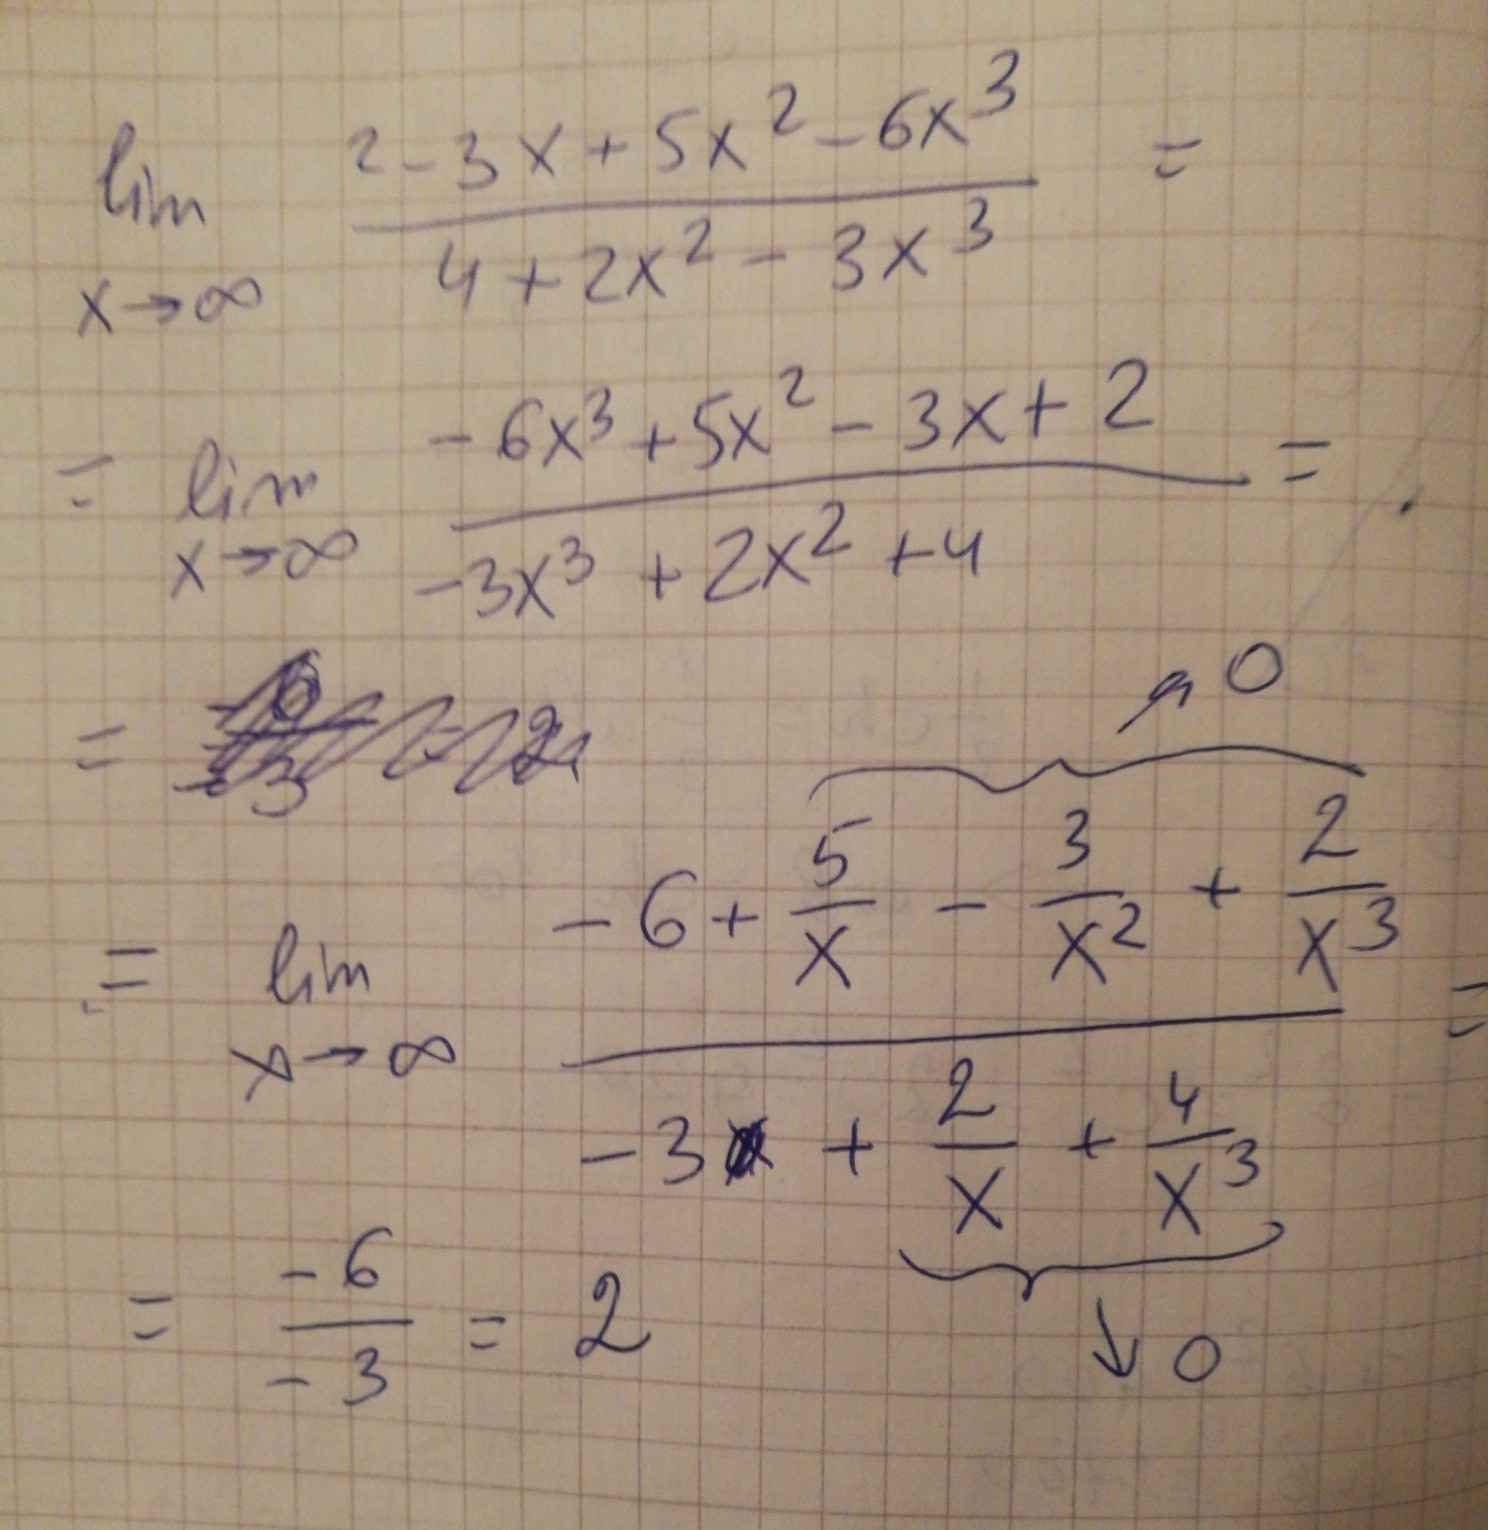 lim x→∞ (2 - 3x + 5x² - 6x³)/(4 + 2x² - 3x³) =
= lim x→∞ (-6x³ + 5x² - 3x + 2)/(-3x³ + 2x² + 4) =
=
→ 0
= lim x→∞ (-6 + 5/x - 3/x² + 2/x³)/(-3 + 2/x + 4/x³) =
↓ 0
= -6/-3 = 2